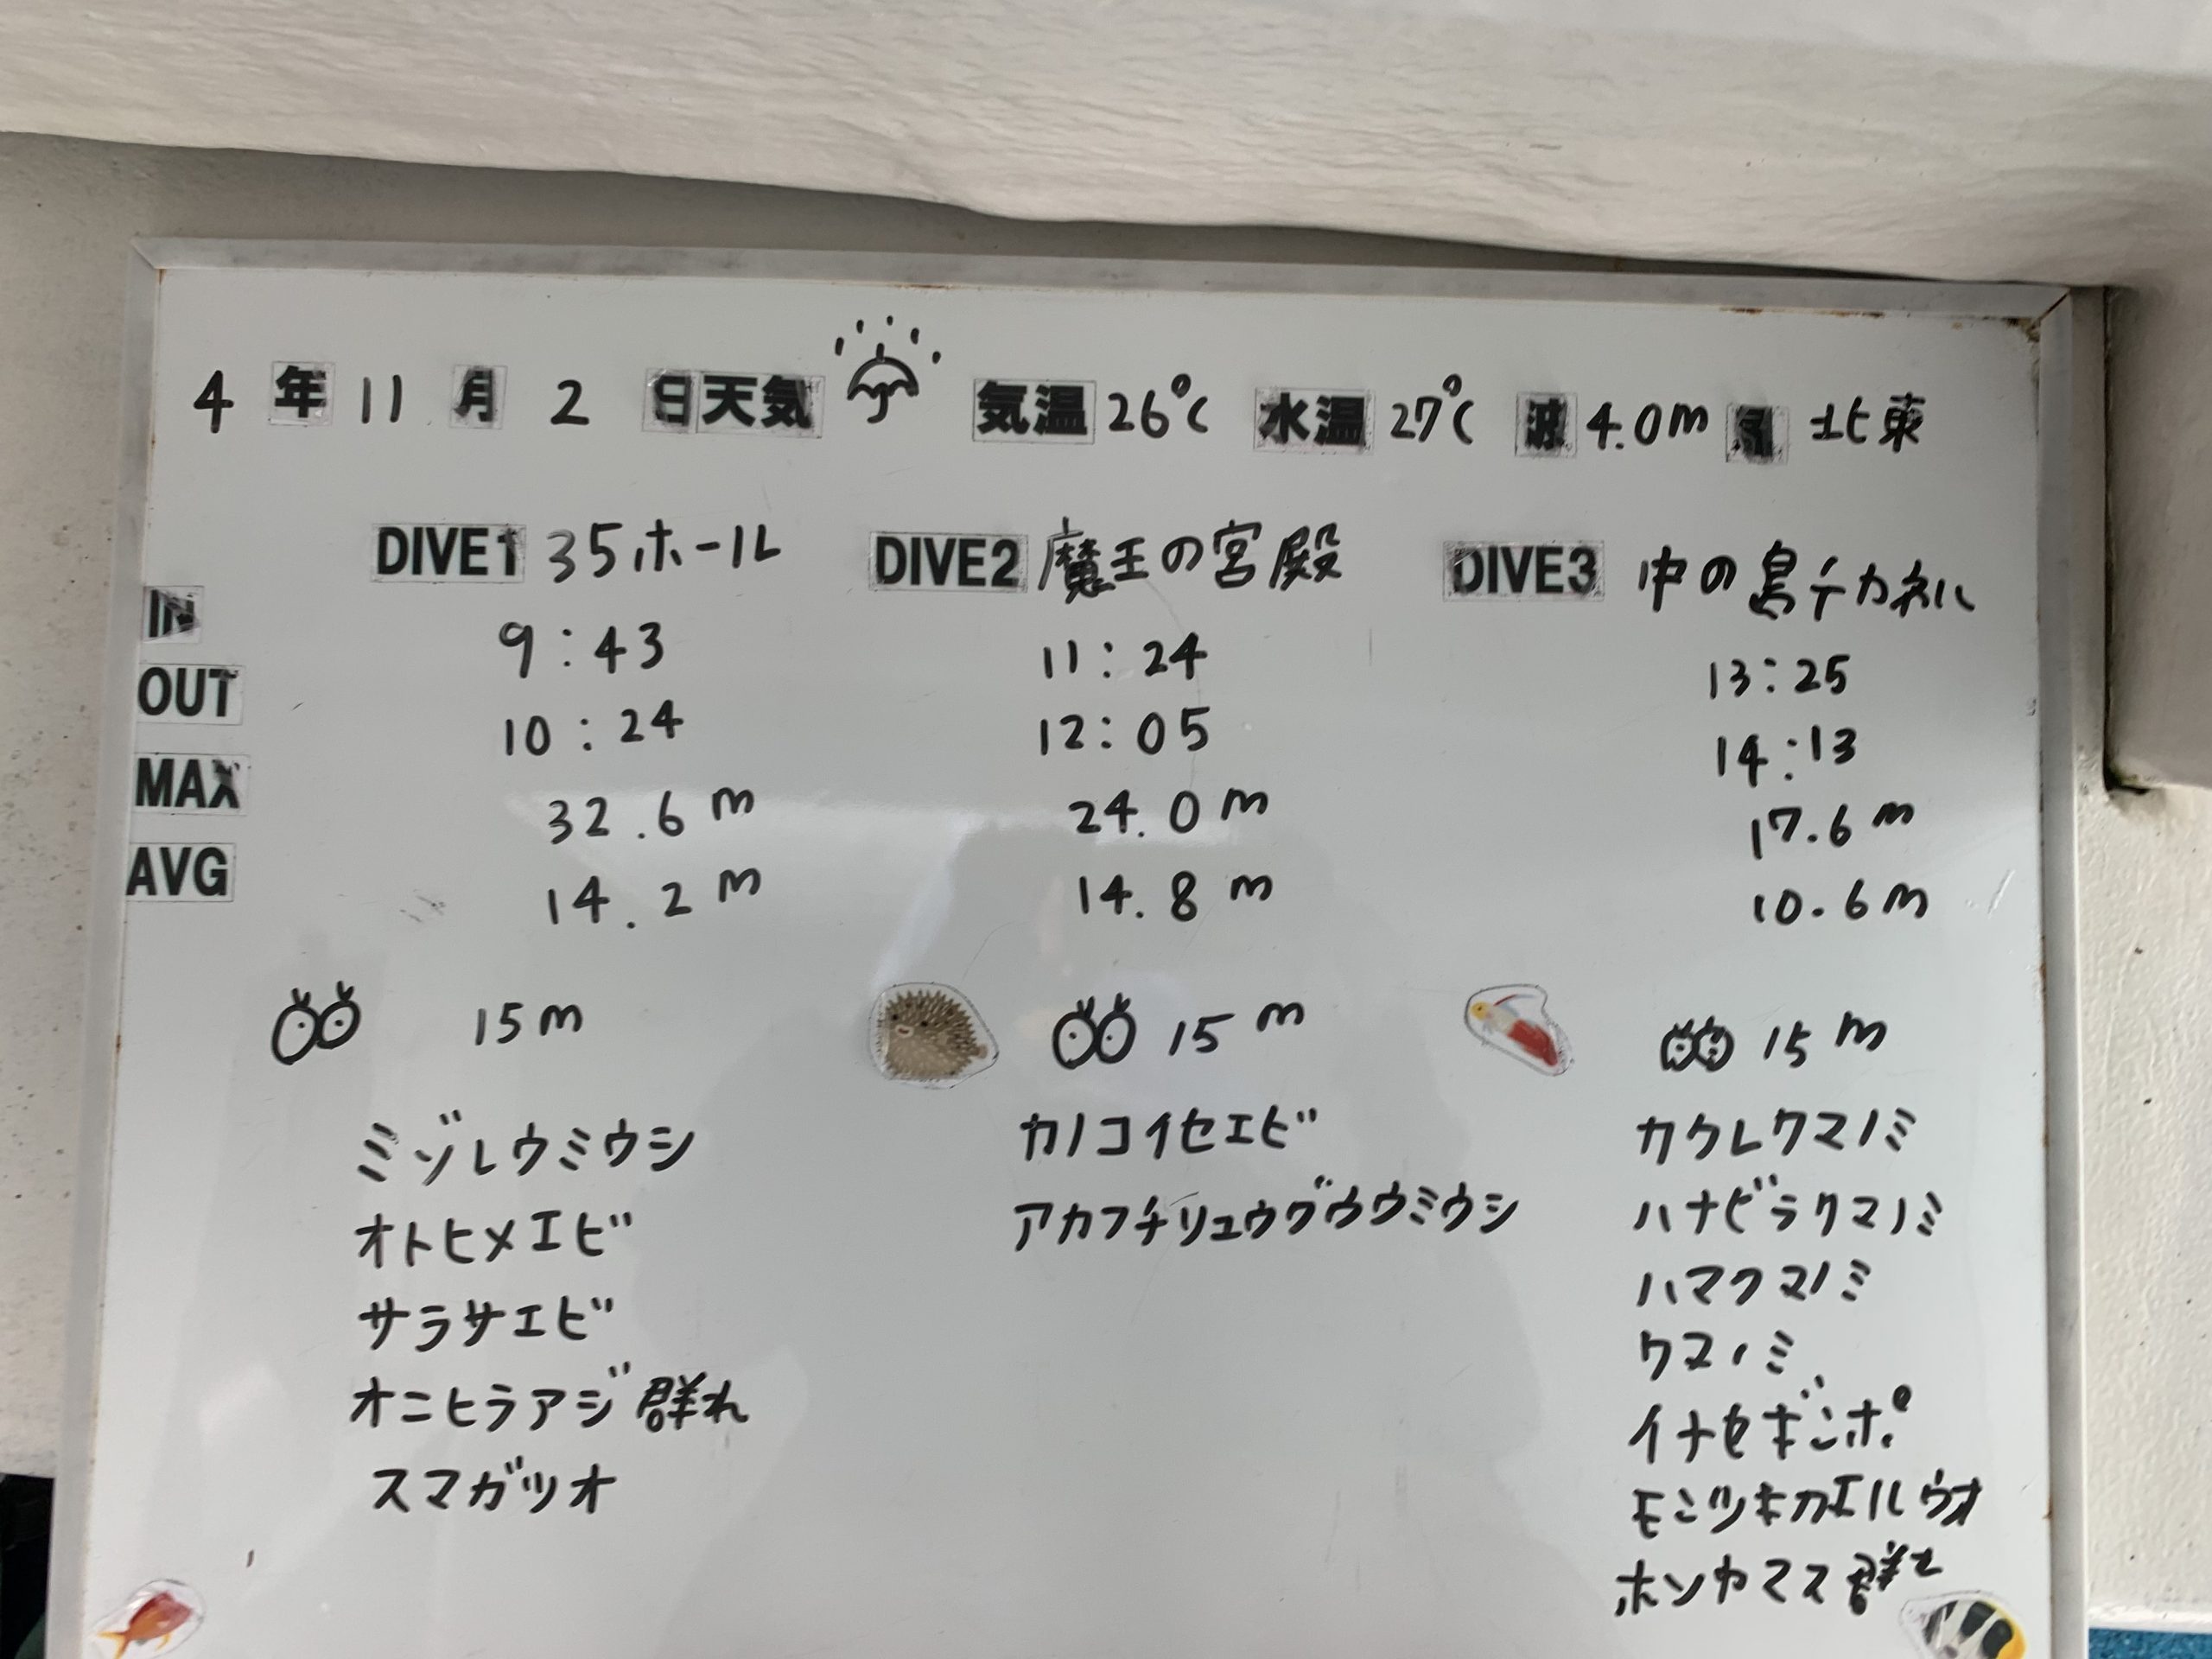 4 年 11 月 2 日 天気 気温 26℃ 水温 27℃ 波 4.0m 風 北東
DIVE1 35ホール DIVE2 魔王の宮殿 DIVE3 中の島チカネル
IN 9:43 11:24 13:25
OUT 10:24 12:05 14:13
MAX 32.6m 24.0m 17.6m
AVG 14.2m 14.8m 10.6m
15m 15m 15m
ミゾレウミウシ
オトヒメエビ
サラサエビ
オニヒラアジ群れ
スマガツオ
カノコイセエビ
アカフチリュウグウウミウシ
カクレクマノミ
ハナビラクマノミ
ハマクマノミ
クマノミ
イナセギンポ
モンツキカエルウオ
ホソカマス群れ